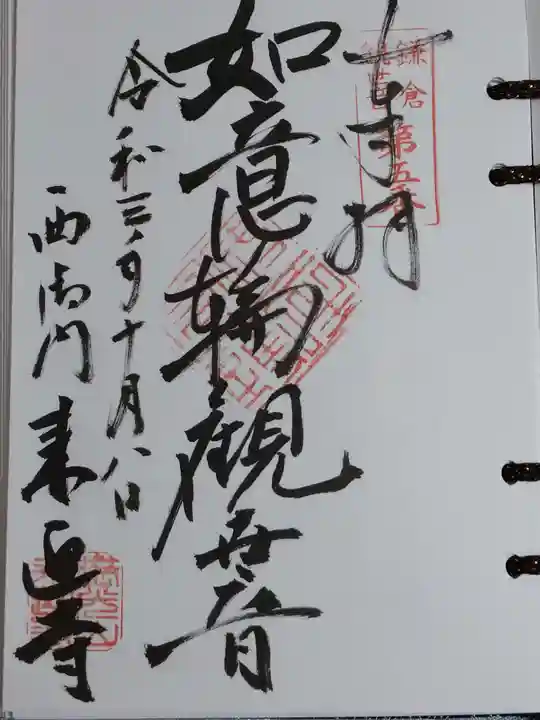 奉拝
鎌倉
観音第五番
如意輪観世音
令和三年十月八日
西御門 来迎寺